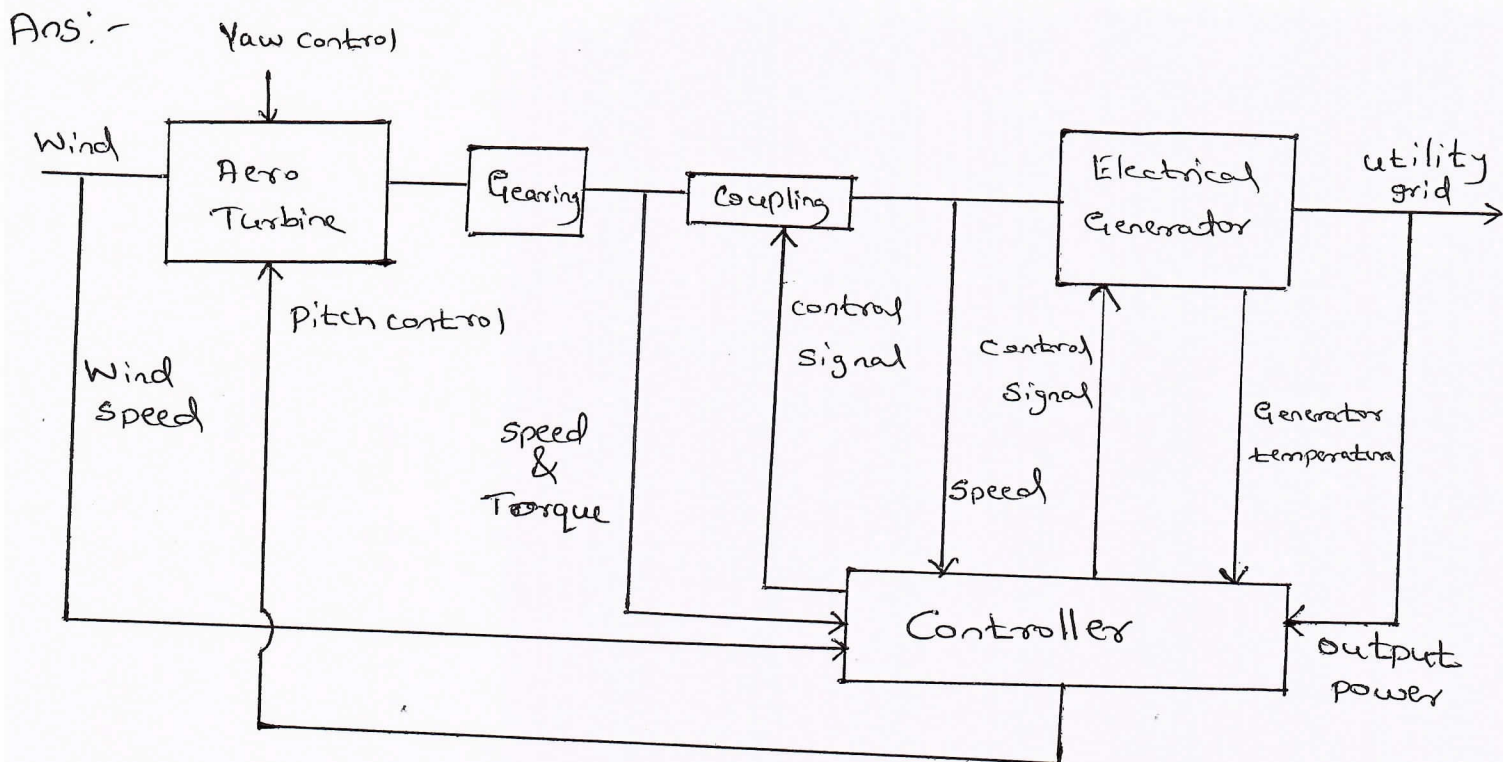 Ans:-
Yaw control
Wind
Aero
Turbine
Gearing
Coupling
Electrical
Generator
utility
grid
Pitch control
Wind
Speed
Speed
&
Torque
control
Signal
Speed
Control
Signal
Generator
temperature
Controller
output
power